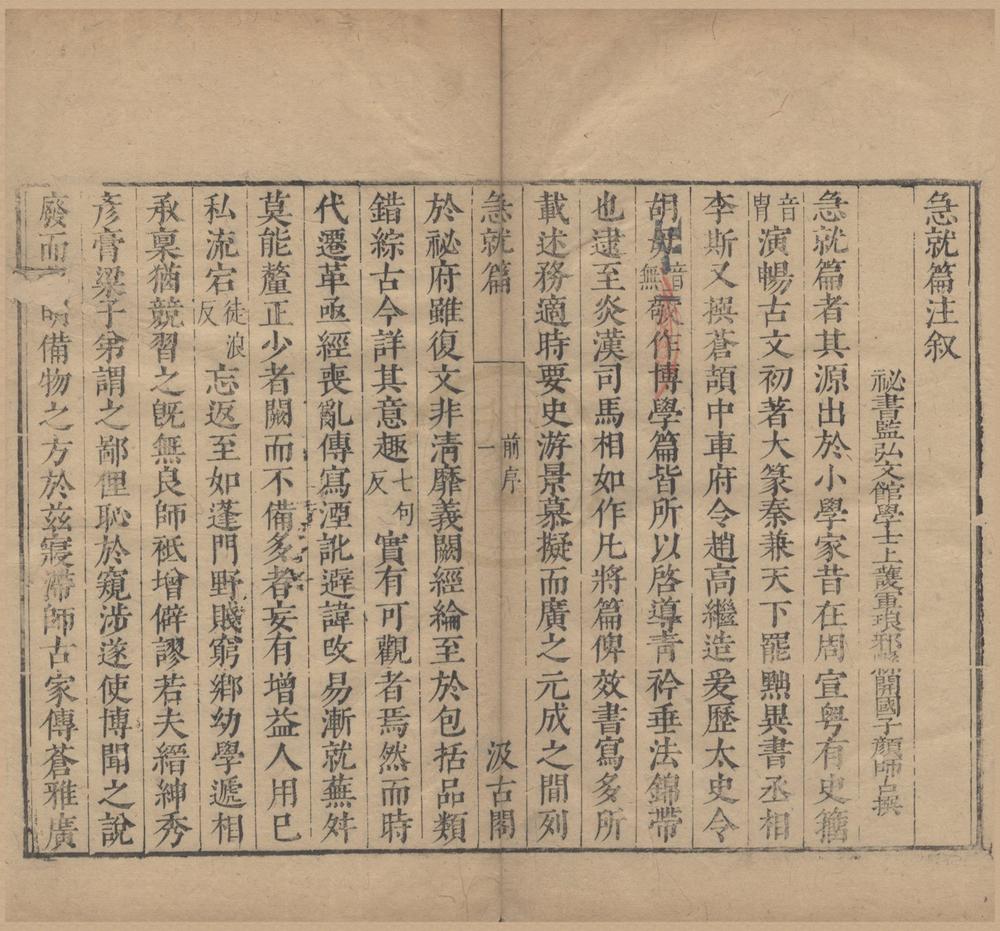 急就篇注叙
秘書監弘文館學士上護軍琅邪縣開國子顏師古撰
急就篇者其源出於小學家昔在周宣粤有史籀
音胄演暢古文初著大篆秦兼天下罷黜異書丞相
李斯又撰蒼頡中車府令趙高繼造爰歷太史令
胡母音無敬作博學篇皆所以啓導青衿垂法錦帶
也逮至炎漢司馬相如作凡將篇俾效書寫多所
載述務適時要史游景慕擬而廣之元成之間列
急就篇 前序 一 汲古閣
於祕府雖復文非清靡義闕經綸至於包括品類
錯綜古今詳其意趣七句反實有可觀者焉然而時
代遷革亟經喪亂傳寫湮訛避諱改易漸就蕪舛
莫能釐正少者闕而不備多者妄有增益人用已
私流宕徒浪反忘返至如蓬門野賤窮鄉幼學遞相
承稟猶競習之旣無良師祗增僻謬若夫縉紳秀
彥膏粱子弟謂之鄙俚恥於窺涉遂使博聞之說
廢而明備物之方於茲寢滯師古家傳蒼雅廣